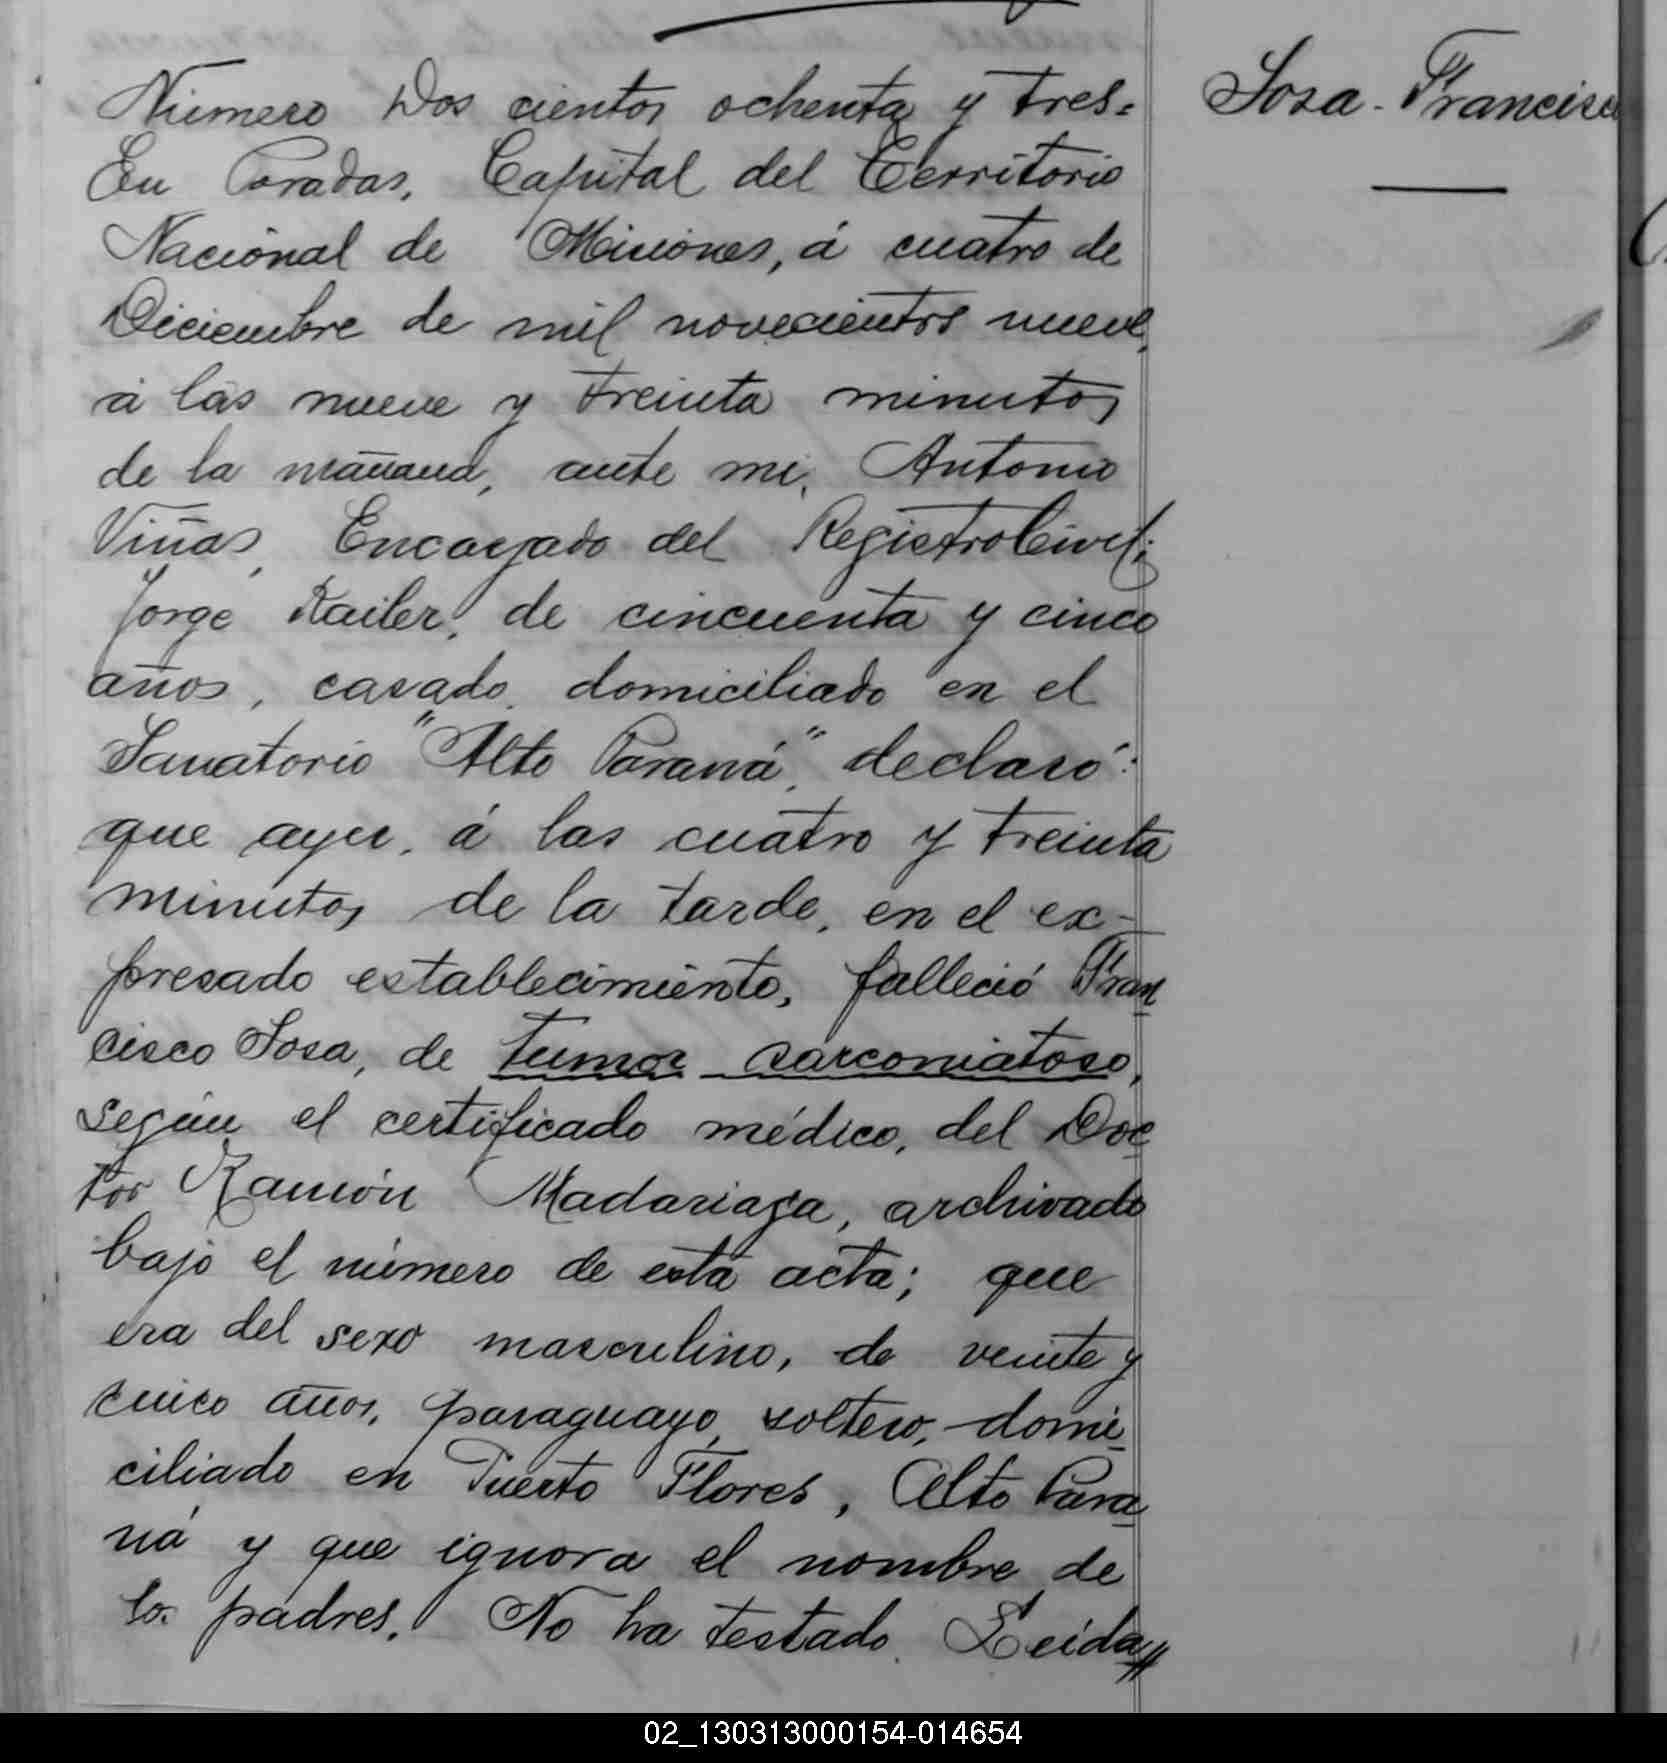 Número Dos cientos ochenta y tres=
En Posadas, Capital del Territorio
Nacional de Misiones, á cuatro de
Diciembre de mil novecientos nueve,
á las nueve y treinta minutos
de la mañana, ante mi, Antonio
Viñas, Encargado del Registro Civil;
Jorge Kailer, de cincuenta y cinco
años, casado, domiciliado en el
Sanatorio "Alto Paraná," declaró:
que ayer, á las cuatro y treinta
minutos de la tarde, en el ex-
presado establecimiento, falleció Fran
cisco Sosa, de tumor sarcomatoso,
según el certificado médico, del Doc
tor Ramón Madariaga, archivado
bajo el número de esta acta; que
era del sexo masculino, de veinte y
cinco años, paraguayo, soltero, domi
ciliado en Puerto Flores, Alto Para
ná y que ignora el nombre de
los padres. No ha testado. Leida
Sosa - Francisco
02_130313000154-014654